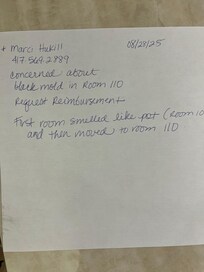 * Marci Hakill 08/28/25
417.569.2889
concerned about
black mold in Room 110
Request Reimbursement
First room smelled like pot (Room 10
and then moved to room 110